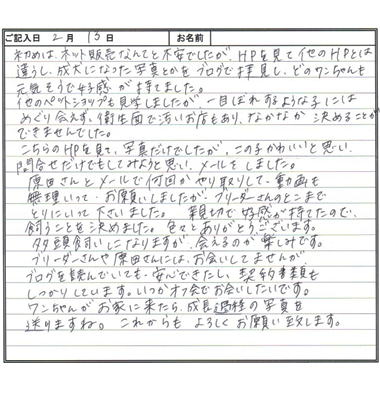 ご記入日 2月 13日 お名前
初めは、ネット販売なんてと不安でしたが、HPを見て他のHPとは
違うし、成犬になった写真とかをブログで拝見し、どのワンちゃんも
元気そうで好感が持てました。
他のペットショップも見学しましたが、一目ぼれするような子には
めぐり会えず、衛生面で汚いお店もあり、なかなか決めることが
できませんでした。
こちらのHPを見て、写真だけでしたが、この子かわいいと思い、
問合せだけでもしてみようと思い、メールをしました。
原田さんとメールで何回かやり取りして、動画も
無理いって、お願いしましたが、ブリーダーさんのとこまで
とりにいって下さいました。 親切で好感が持てたので、
飼うことを決めました。色々とありがとうございます。
多頭飼いになりますが、会えるのが楽しみです。
ブリーダーさんや原田さんには、お会いしてませんが
ブログを読んでいても、安心できたし、契約書類も
しっかりしています。いつかオフ会でお会いしたいです。
ワンちゃんがお家に来たら、成長過程の写真を
送りますね。これからもよろしくお願い致します。